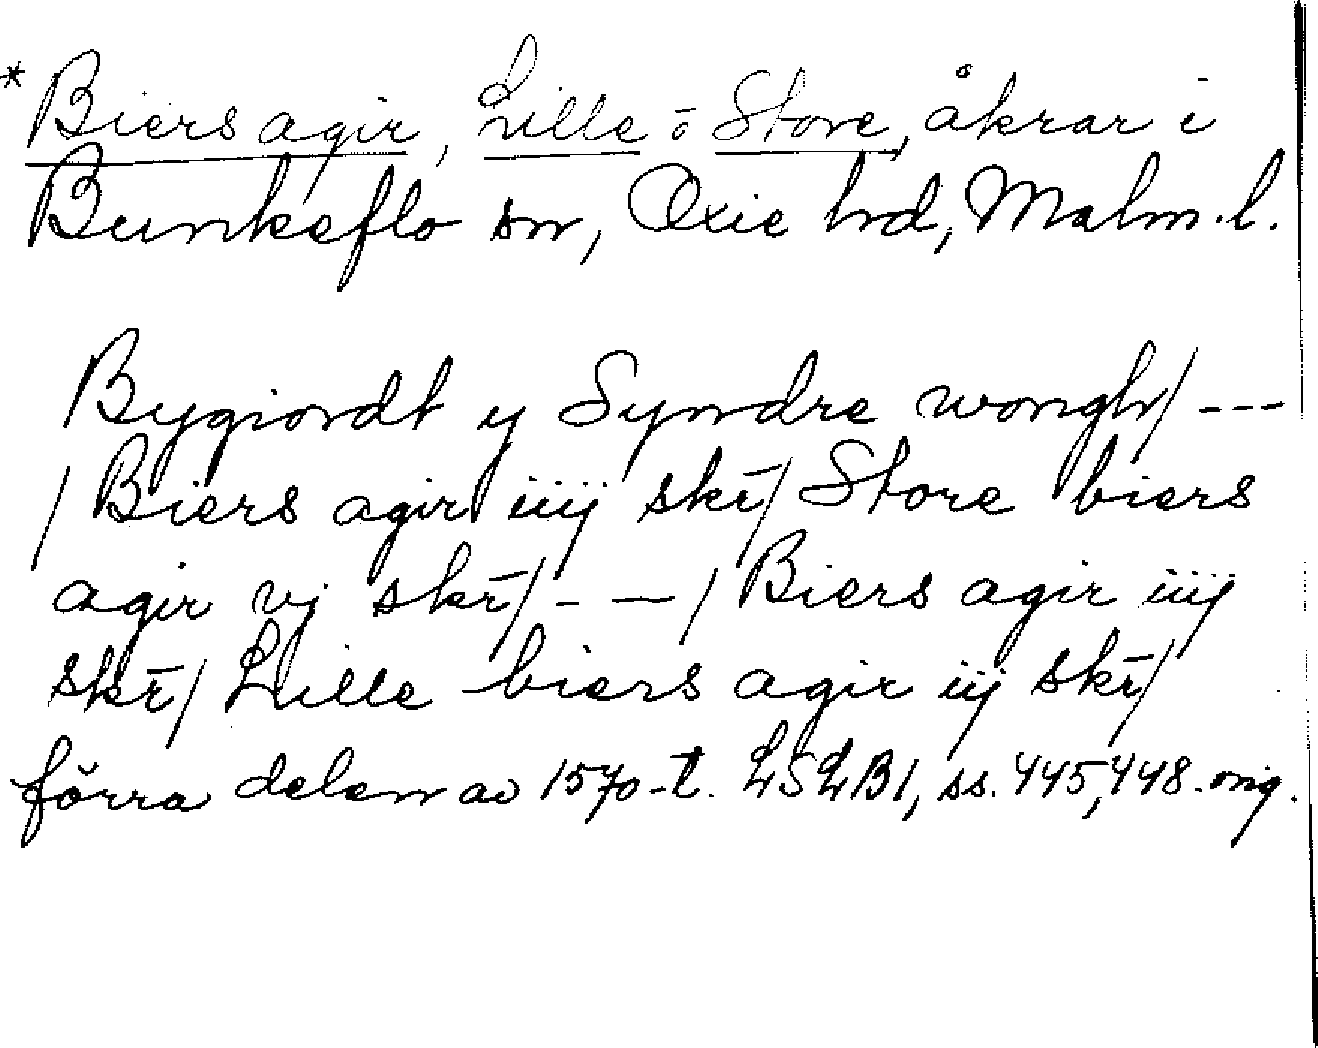 *Biers agir, Lille o Store, åkrar i
Bunkeflo sn, Oxie hrd, Malm. l.
Bygiordt y Syndre wongh/ ---
/ Biers agir iiij skr̄/ Store biers
agir vj skr̄/ - - - / Biers agir iiij
skr̄/ Lille biers agir iij skr̄/
förra delen av 1570-t. LSLB1, ss. 445, 448. orig.